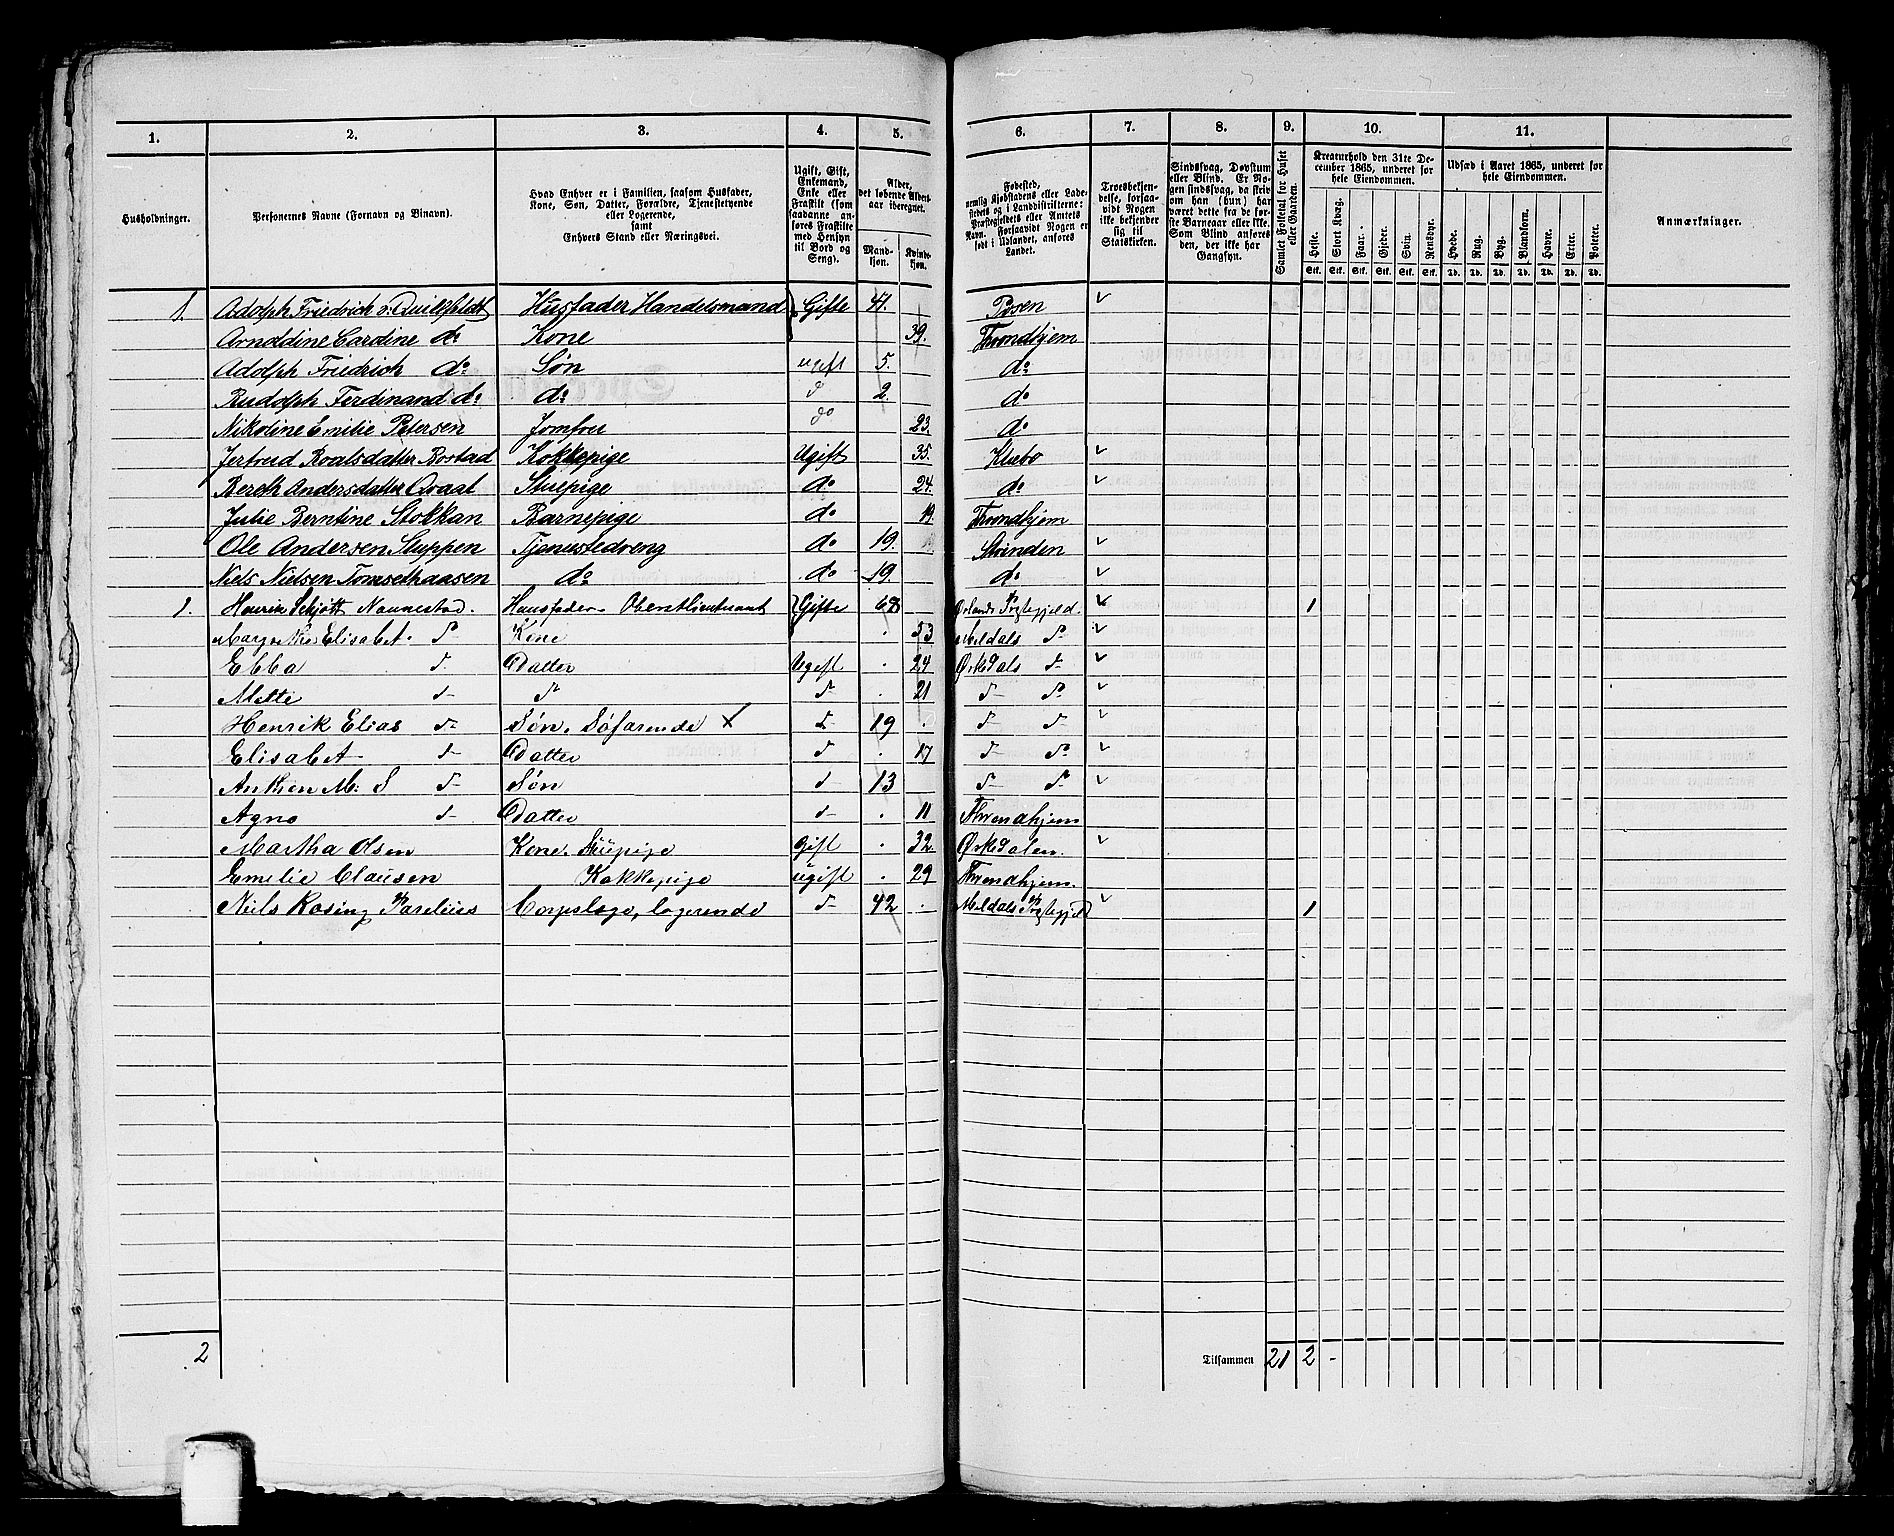 1. 2. 3. 4. 5. 6. 7. 8. 9. 10. 11.
Husholdninger.
Personernes Navne (Fornavn og Binavn).
Hvad Enhver er i Familien, saasom Husfader,
Kone, Søn, Datter, Forældre, Tjenestetyende
eller Logerende,
samt
Enhvers Stand eller Næringsvei.
Ugift, Gift,
Enkemand,
Enke eller
Fraskilt (som
saadanne an-
føres Fraskilte
med Hensyn
til Bord og
Seng).
Alder,
det løbende Alders-
aar iberegnet.
Mand-
kjøn.
Kvind-
kjøn.
Fødested,
nemlig Kjøbstadens eller Lade-
stedets og i Landdistrikterne:
Præstegjeldets eller Amtets
Navn. Forsaavidt Nogen er
født i Udlandet, anføres
Landet.
Troesbekjen-
delse, forsaa-
vidt Nogen
ikke bekjender
sig til
Statskirken.
Sindssvag, Døvstum
eller Blind. Er No-
gen sindssvag, da skriv
om han (hun) har
været dette fra de før-
ste Barneaar eller ikke.
Som Blind anføres
den, der ikke har
Gangsyn.
Samlet Folketal for Huset
eller Gaarden.
Kreaturhold den 31te De-
cember 1865, underet for
hele Eiendommen.
Heste. Stort Kvæg. Faar. Gjeder. Svin. Rensdyr.
Stk. Stk. Stk. Stk. Stk. Stk.
Udsæd i Aaret 1865, underet for
hele Eiendommen.
Hvede. Rug. Byg. Blandkorn. Havre. Erter. Poteter.
Td. Td. Td. Td. Td. Td. Td.
Anmærkninger.
1. Adolph Friedrich v: Quilfeldt Husfader Handelsmand Gifte 41. Posen
Arnoldine Cardine do Kone 39. Throndhjem
Adolph Friedrich do Søn ugift 5. do
Rudolph Ferdinand do do d 2. do
Nikoline Emilie Petersen Jomfru do 23. do
Jertrud Roalsdatter Rostad Kokkepige Ugift 35. Klæbo
Bereth Andersdatter Qvaal Stuepige do 24. do
Julie Berntine Stokkan Barnepige do 19. Throndhjem
Ole Andersen Sluppen Tjenestedreng do 19. Strinden
Niels Nielsen Tomsethaasen do do 19. do
1. Henrik Schjøtt Nannestad. Huusfader Oberstlieutnant Gifte 68 Ørlands Præstegjeld. 1
Elisabet. do Kone 53 Meldals do
Ebba d Datter Ugift 24 Ørkedals d
Mette d do d 21 d do
Henrik Elias d Søn. Søfarende X d 19 d do
Elisabet d Datter d 17 d do
Anthon M: S d Søn d 13 d do
Agnes d Datter d 11 Throndhjem
Martha Olsen Kone. Stuepige Gift 32. Ørkedalen.
Emelie Clausen Kokkepige ugift 29 Throndhjem.
Niels Rosing Parelius Corpslæge, logerende d 42 Meldals Præstegjeld 1
2 Tilsammen 21 2 -